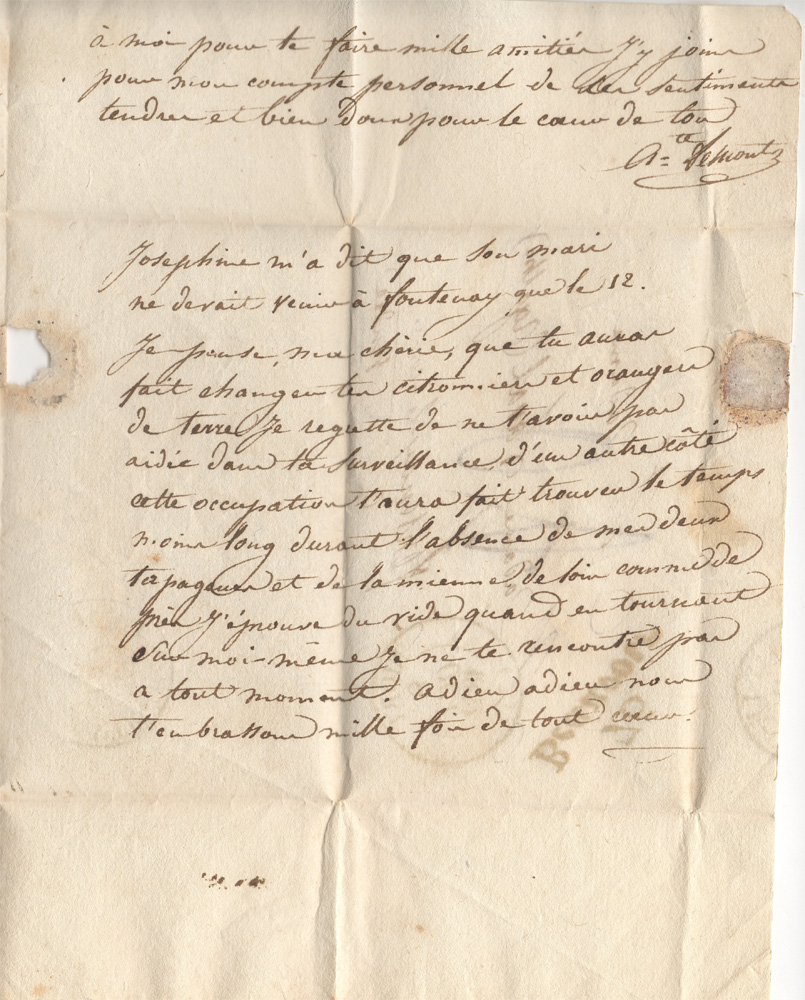 à moi pour te faire mille amitiés J'y joins
pour mon compte personnel de des sentiments
tendres et bien doux pour le cœur de ton
A=te Demont
Josephine m'a dit que son mari
ne devait venir à fontenay que le 12.
Je pense, ma chérie, que tu auras
fait changer tes citronniers et orangers
de terre Je regrette de ne t'avoir pas
aidée dans ta surveillance, d'un autre côté
cette occupation t'aura fait trouver le temps
moins long durant l'absence de mes deux
tapageurs et de la mienne, de loin comme de
près J'éprouve du vide quand en tournant
sur moi-même Je ne te rencontre pas
a tout moment. adieu adieu nous
t'embrassons mille fois de tout cœur.